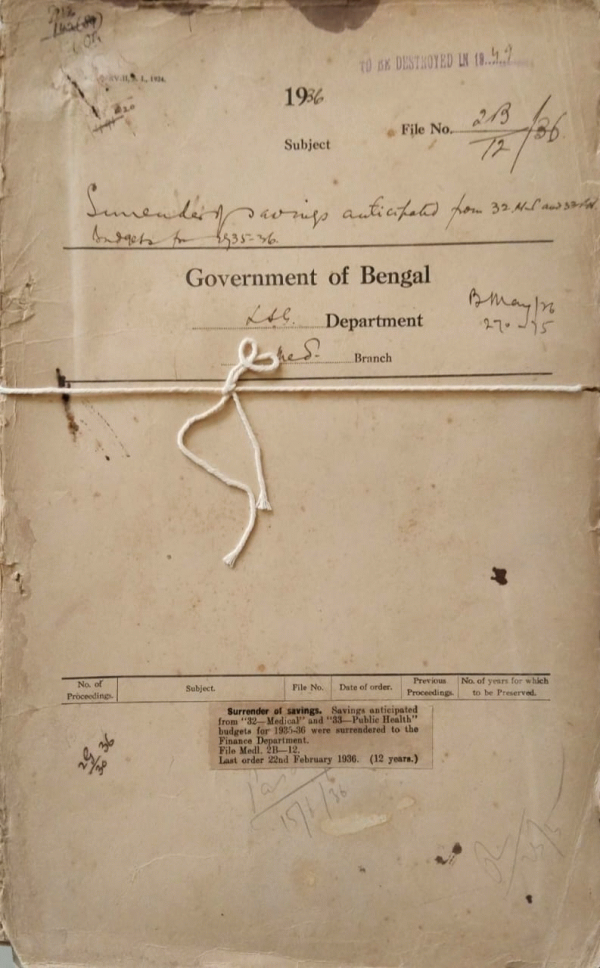 TO BE DESTROYED IN 19
1936
File No. 2B/12/36
Subject
Surrender of savings anticipated from 32 Med and 33 P.H.
Budgets for 1935-36.
Government of Bengal
L.S.G. Department
Med. Branch
B May/36
270-75
No. of Proceedings.
Subject.
File No.
Date of order.
Previous Proceedings.
No. of years for which to be Preserved.
Surrender of savings. Savings anticipated
from "32—Medical" and "33—Public Health"
budgets for 1935-36 were surrendered to the
Finance Department.
File Medl. 2B—12.
Last order 22nd February 1936. (12 years.)